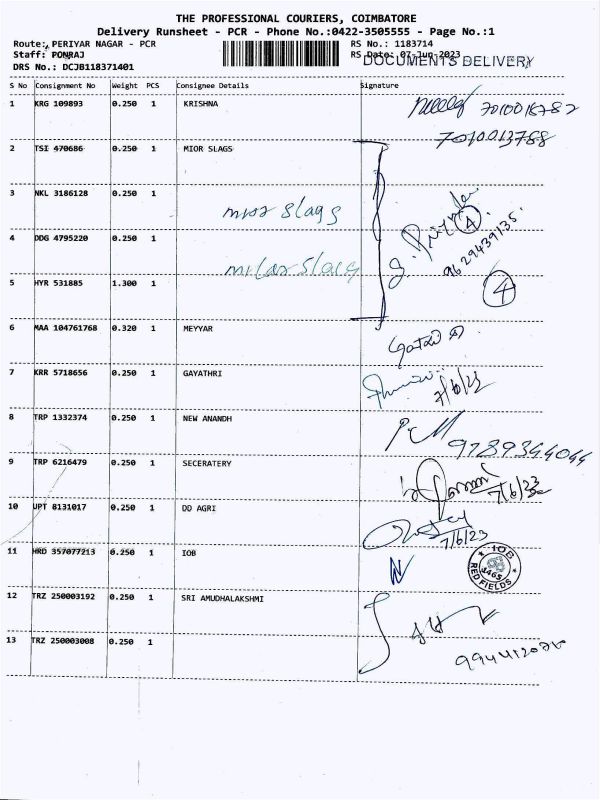 THE PROFESSIONAL COURIERS, COIMBATORE
Delivery Runsheet - PCR - Phone No.:0422-3505555 - Page No.:1
Route: PERIYAR NAGAR - PCR
RS No.: 1183714
Staff: PONRAJ
RS Date: 07-Jun-2023
DOCUMENTS DELIVERY
DRS No.: DCJB118371401
S No Consignment No Weight PCS Consignee Details Signature
1 KRG 109893 0.250 1 KRISHNA
7010013788
2 TSI 470686 0.250 1 MIOR SLAGS
3 NKL 3186128 0.250 1
mior slags
4 DDG 4795220 0.250 1
9629439135
slag
5 HYR 531885 1.300 1
4
6 MAA 104761768 0.320 1 MEYYAR
7 KRR 5718656 0.250 1 GAYATHRI
7/6/23
8 TRP 1332374 0.250 1 NEW ANANDH
9789344044
9 TRP 6216479 0.250 1 SECERATERY
7/6/23
10 UPT 8131017 0.250 1 DD AGRI
7/6/23
11 HRD 357077213 0.250 1 IOB
IOB
1465
RED FIELDS
12 TRZ 250003192 0.250 1 SRI AMUDHALAKSHMI
13 TRZ 250003008 0.250 1